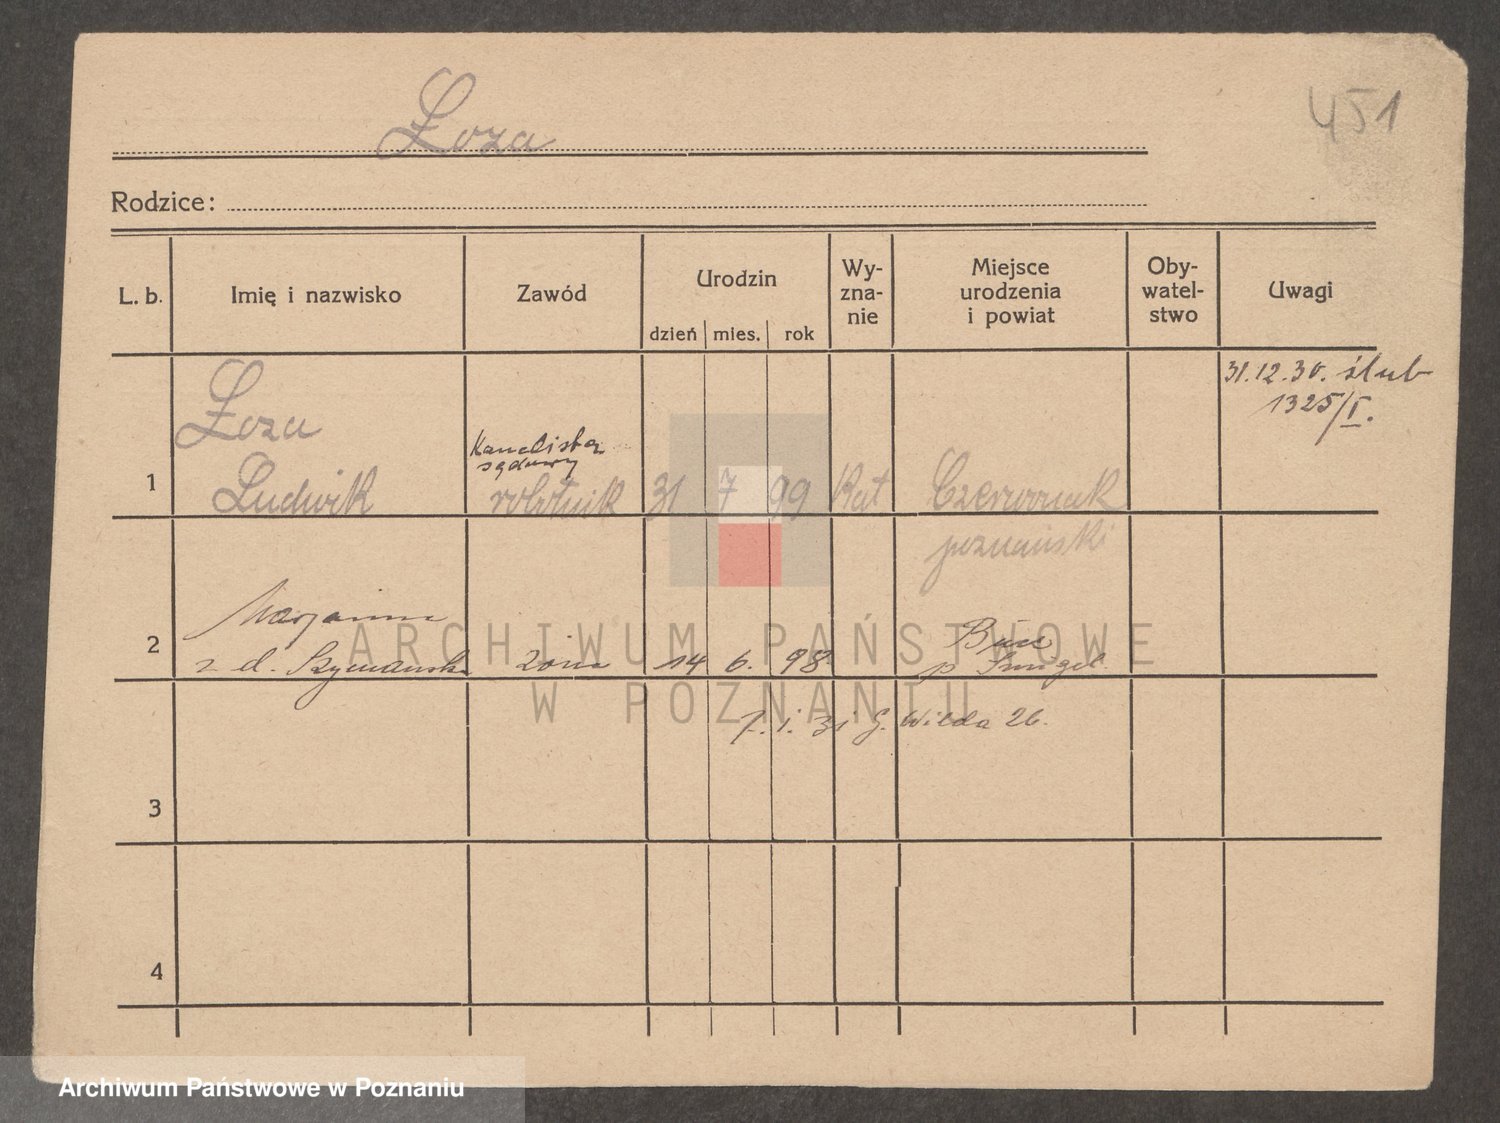 Łoza
451
Rodzice:
L. b.
Imię i nazwisko
Zawód
Urodzin
dzień mies. rok
Wy-
zna-
nie
Miejsce
urodzenia
i powiat
Oby-
watel-
stwo
Uwagi
1
Łoza
Ludwik
Kancelista
sądowy
robotnik
31 7 99
Kat
Czerwonak
poznański
31.12.30. ślub
1325/I.
2
Marjanna
z d. Szymańska
żona
14 6. 98
p Śmigel
7. 1. 31 G. Wilda 26.
3
4
ARCHIWUM PAŃSTWOWE
W POZNANIU
Archiwum Państwowe w Poznaniu